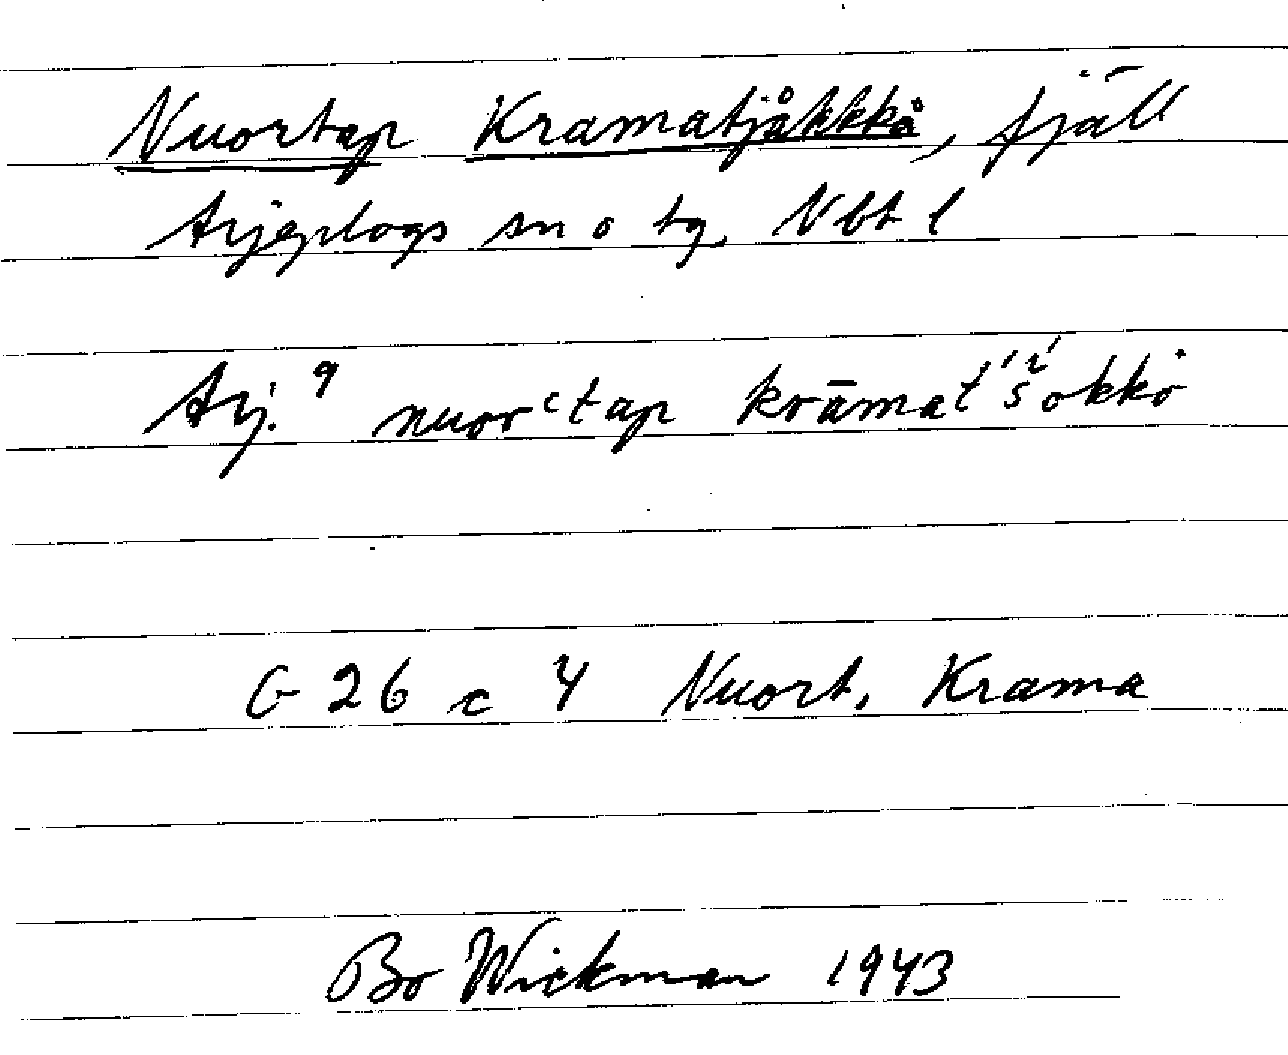 Nuortap Kramatjåkkå, fjäll
Arjeplogs sn o tg, Nbt l
Arj. 9 nuorʿtap krāmat´š´okkȯ
G 26 c 4 Nuort. Krama
Bo Wickman 1943